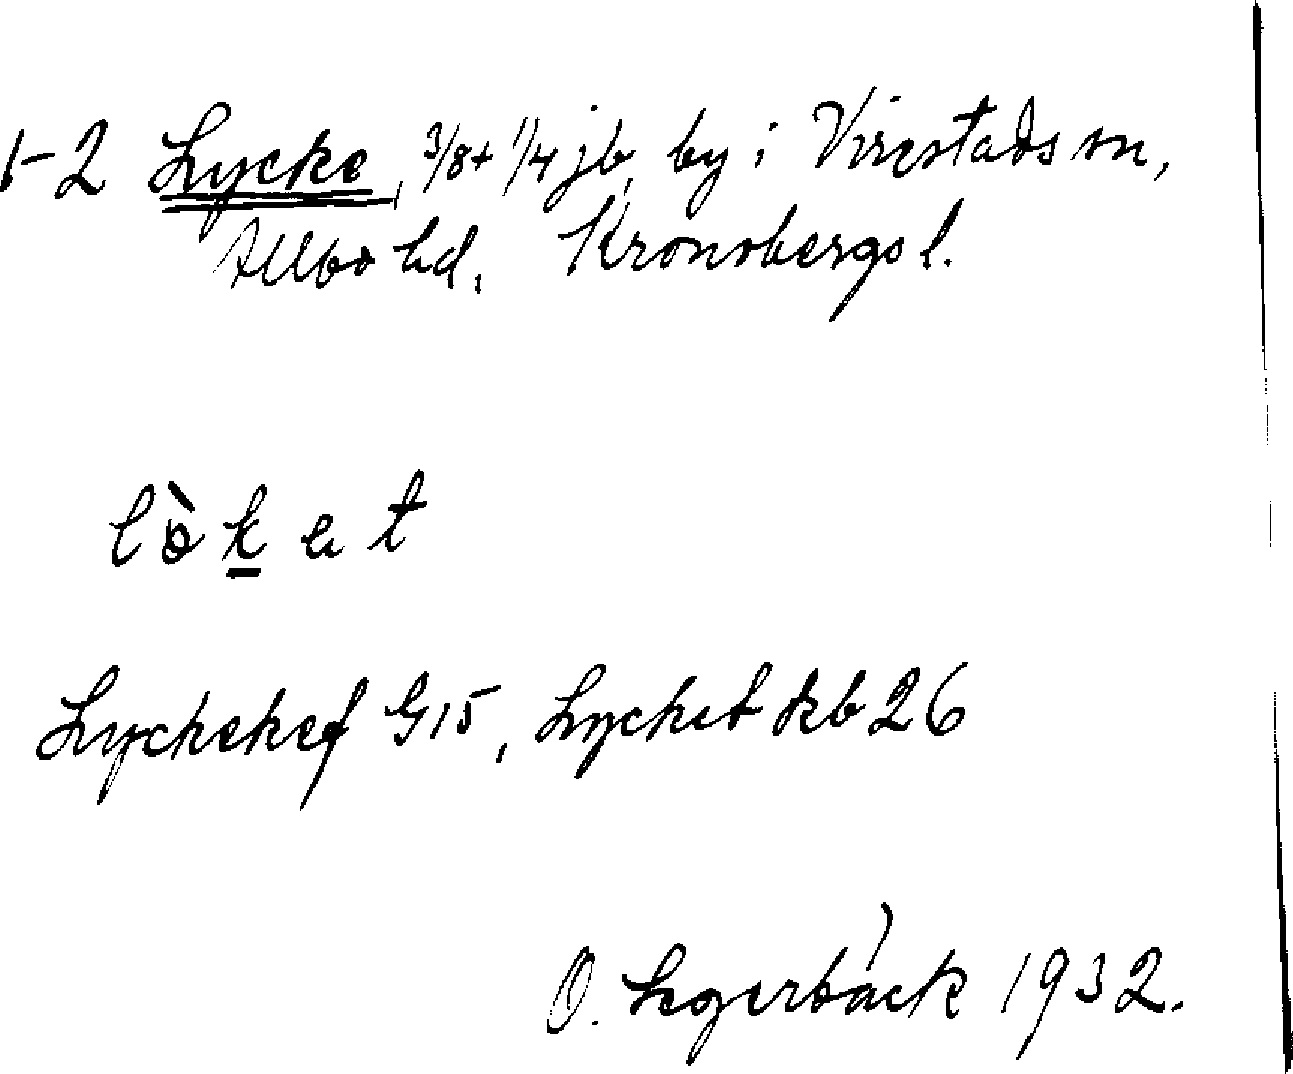 1-2 Lycke, 3/8+1/4 jb, by i Virestads sn,
Allbo hd, Kronobergs l.
lòkat
Lyckehef G15, Lycket kb 26
O. Legerbäck 1932.